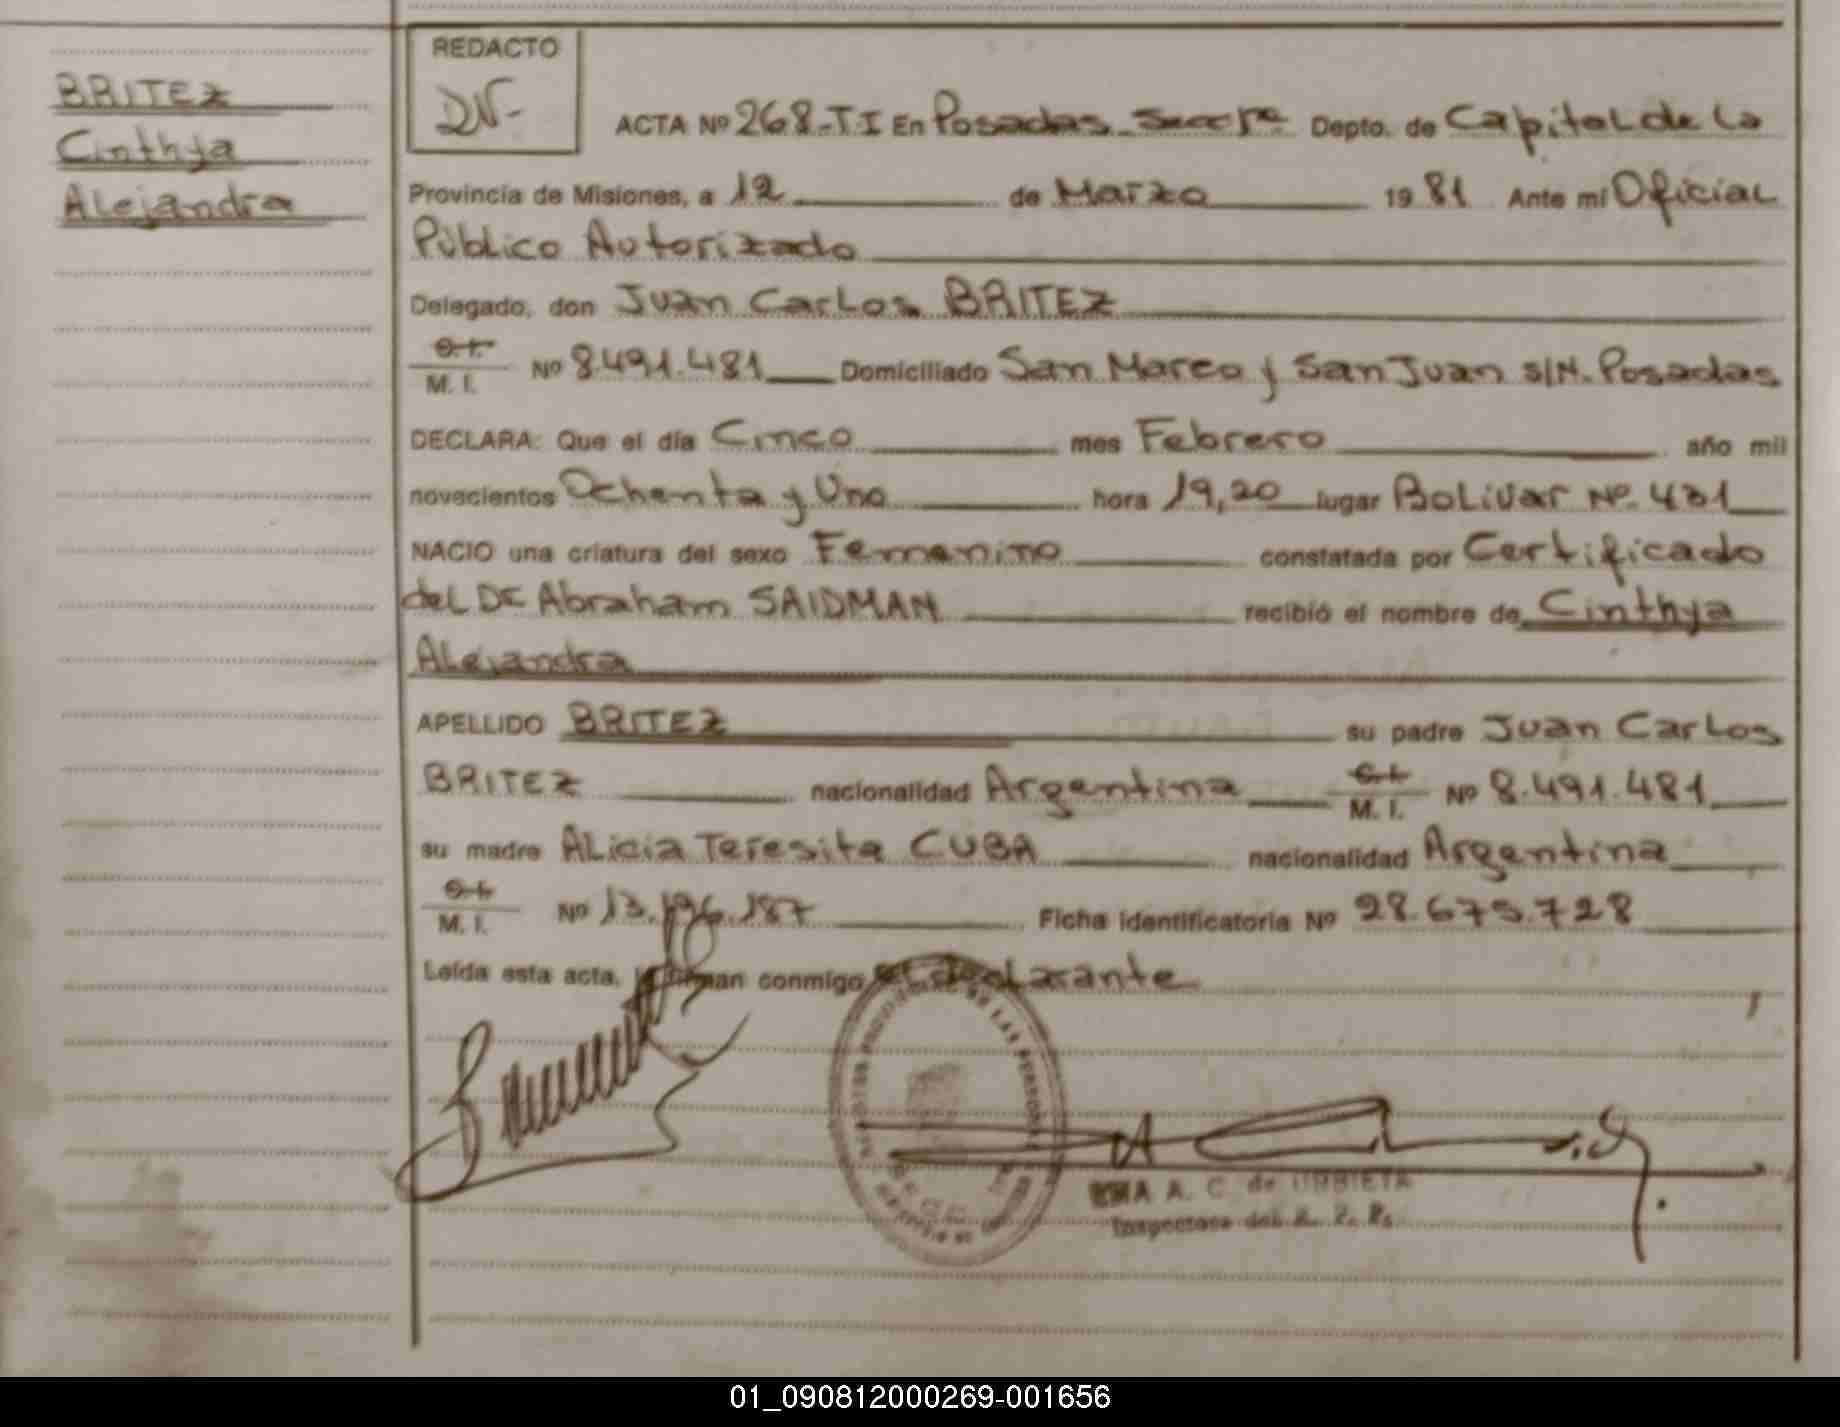 BRITEZ
Cinthya
Alejandra
REDACTO
ACTA Nº 268-TI En Posadas Secc 1ª Depto. de Capital de la
Provincia de Misiones, a 12 de Marzo 1981 Ante mí Oficial
Público Autorizado
Delegado, don Juan Carlos BRITEZ
C.I.
M. I. Nº 8.491.481 Domiciliado San Marco y San Juan S/N. Posadas
DECLARA: Que el día Cinco mes Febrero año mil
novecientos Ochenta y Uno hora 19,20 lugar Bolivar Nº 431
NACIO una criatura del sexo Femenino constatada por Certificado
del Dr Abraham SAIDMAN recibió el nombre de Cinthya
Alejandra
APELLIDO BRITEZ su padre Juan Carlos
BRITEZ nacionalidad Argentina C.I. M. I. Nº 8.491.481
su madre Alicia Teresita CUBA nacionalidad Argentina
C.I.
M. I. Nº 13.196.187 Ficha identificatoria Nº 28.675.728
Leída esta acta, la firman conmigo el declarante
A. C. de URBIETA
Inspectora del R. P. P.
01_090812000269-001656